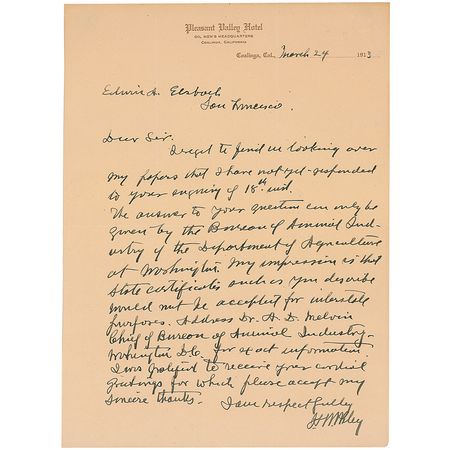 Pleasant Valley Hotel
OIL MEN'S HEADQUARTERS
COALINGA, CALIFORNIA
Coalinga, Cal., March 24 1913
Edwin A. Elsbach
San Francisco.
Dear Sir.
I regret to find in looking over
my papers that I have not yet responded
to your enquiry of 18th inst.
The answer to your question can only be
given by the Bureau of Animal Ind-
ustry of the Department of Agriculture
at Washington. My impression is that
State certificates such as you describe
would not be accepted for interstate
purposes. Address Dr. A. D. Melvin
Chief of Bureau of Animal Industry
Washington D.C. for exact information.
I was gratified to receive your cordial
greetings for which please accept my
sincere thanks.
I am respectfully
H W Wiley